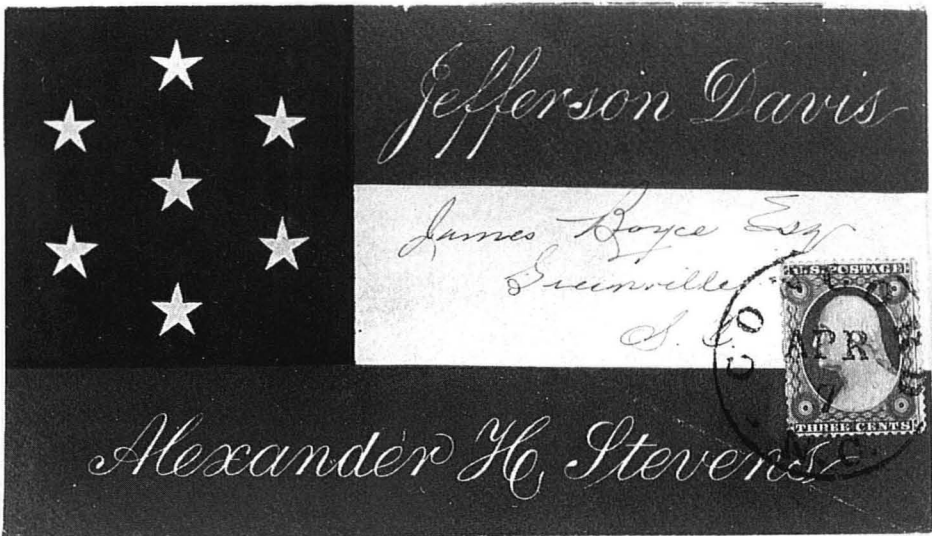 Jefferson Davis
James Boyce Esq
Greenville
S. C.
U.S. POSTAGE
APR
7
THREE CENTS
N.C.
Alexander H. Stevens